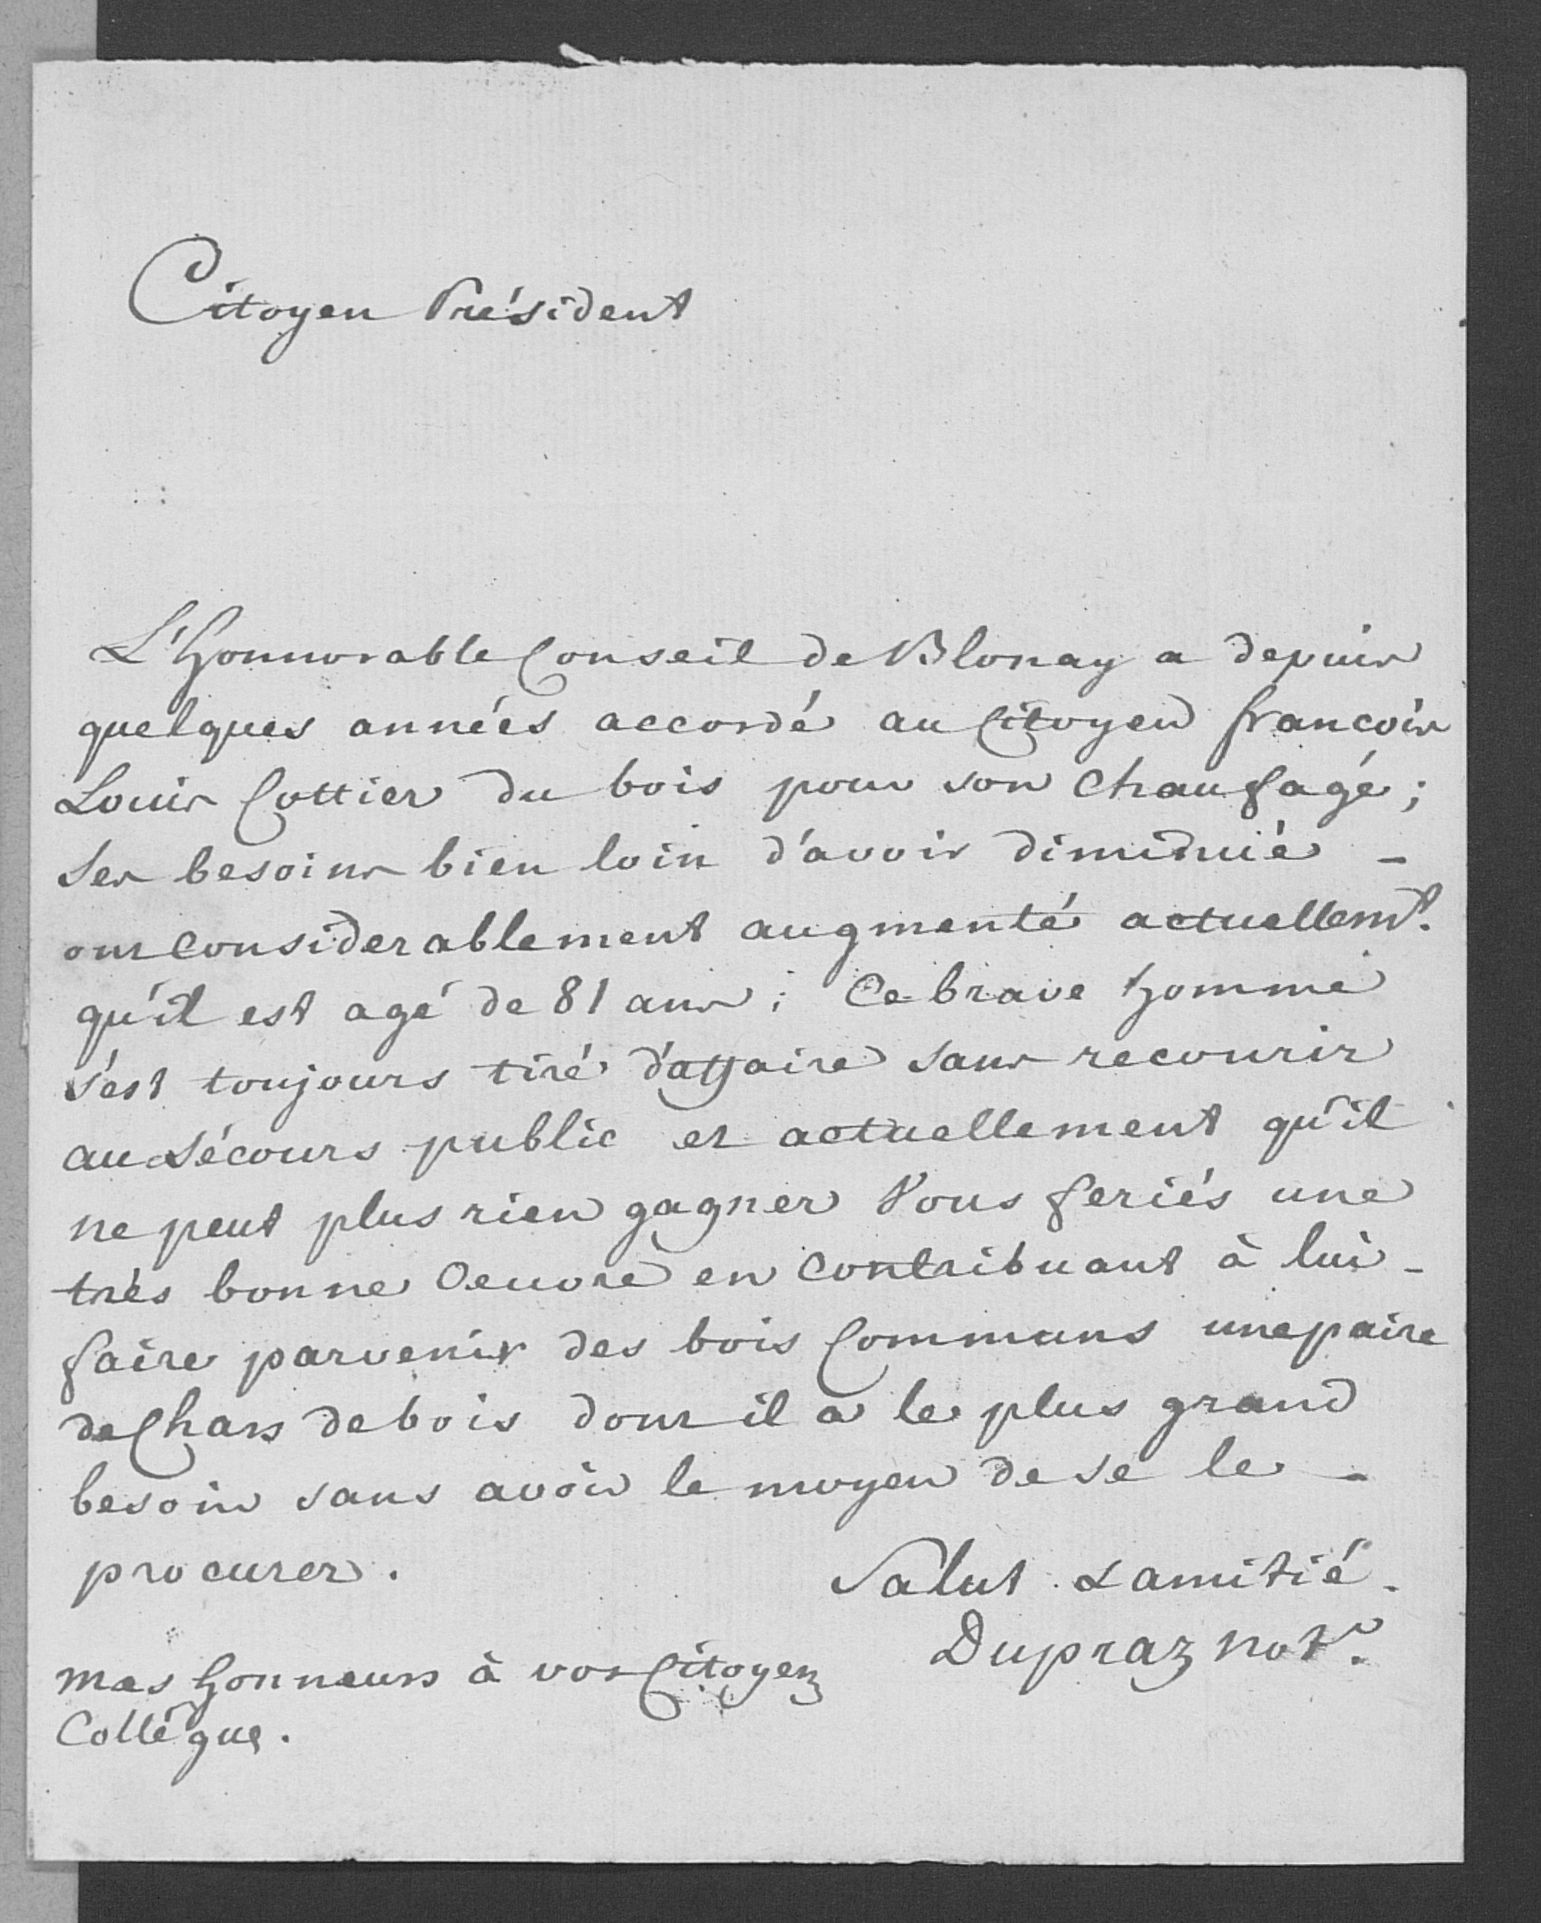 Citoyen Président
L'honnorable Conseil de Blonay a depuis
quelques années accordé au Citoyen francois
Louis Cottier du bois pour son chaufage;
Ses besoins bien loin d'avoir diminuié -
ont considerablement augmenté actuellemt.
qu'il est agé de 81 ans; Ce brave homme
s'est toujours tiré d'affaire sans recourir
au sécours public et actuellement qu'il
ne peut plus rien gagner Vous feriés une
très bonne Oeuvre en contribuant à lui -
faire parvenir des bois Communs une paire
de Chars de bois dont il a le plus grand
besoin sans avoir le moyen de se le -
procurer.
Salut & amitié.
Dupraz notre.
Mes honneurs à vos Citoyens
Collègue.